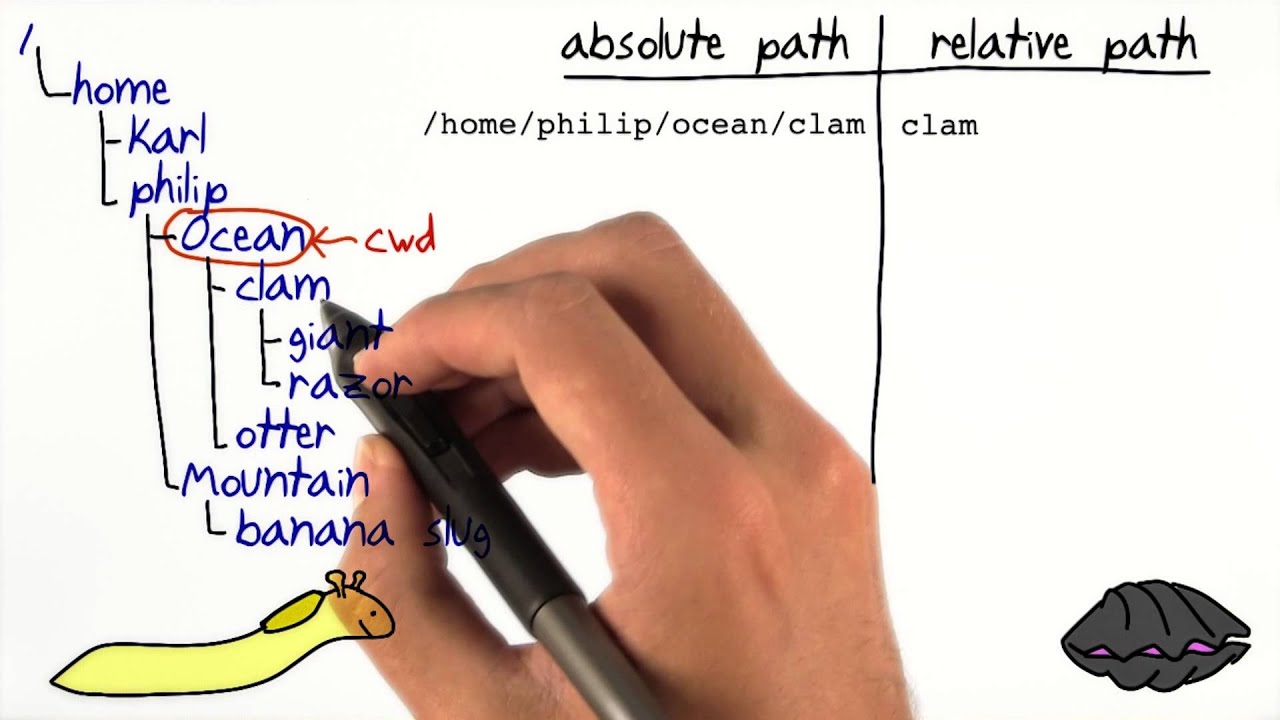 /
home
Karl
philip
Ocean ← cwd
clam
giant
razor
otter
Mountain
banana slug
absolute path relative path
/home/philip/ocean/clam clam